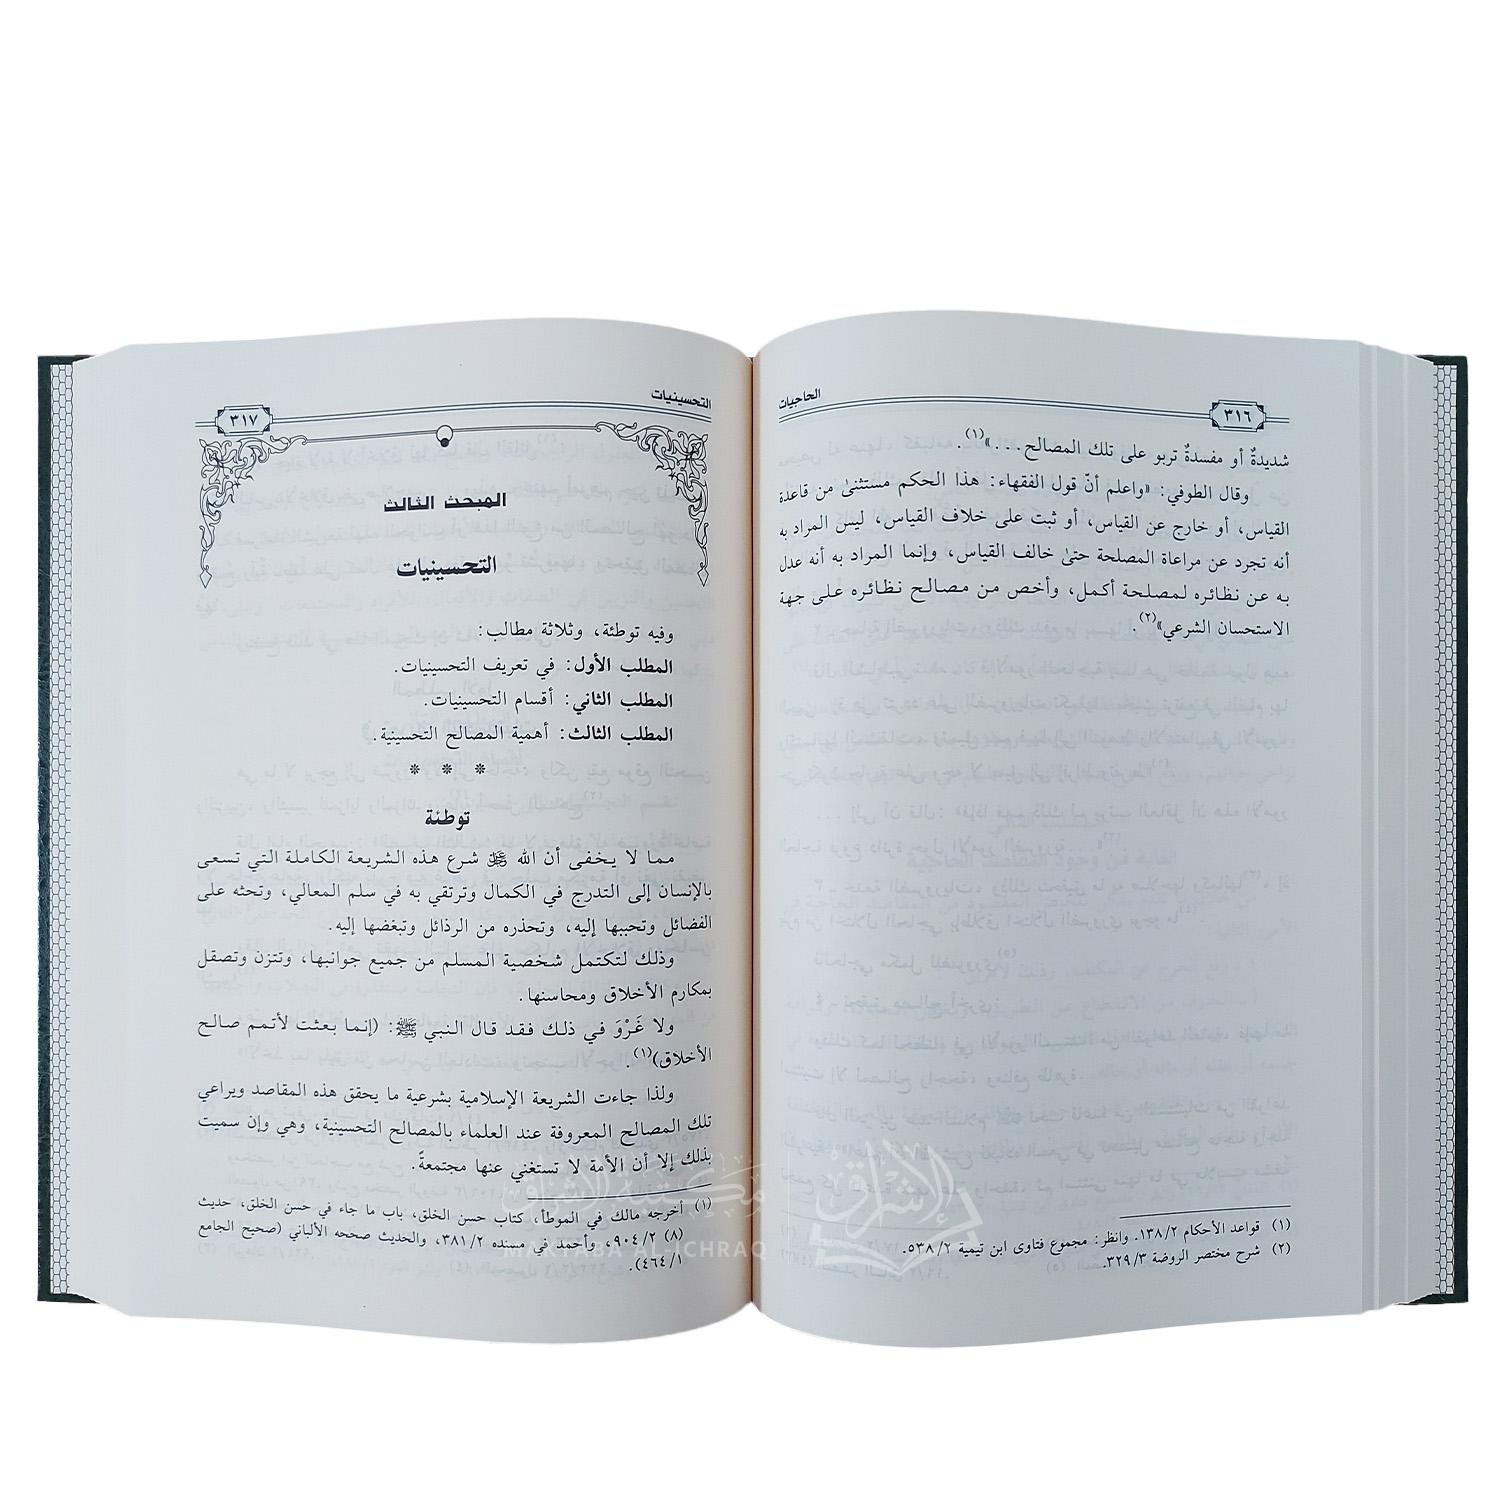 ٣١٦
الحاجيات
شديدةٌ أو مفسدةٌ تربو على تلك المصالح...»(١).
وقال الطوفي: «واعلم أنّ قول الفقهاء: هذا الحكم مستثنىٰ من قاعدة
القياس، أو خارج عن القياس، أو ثبت على خلاف القياس، ليس المراد به
أنه تجرد عن مراعاة المصلحة حتىٰ خالف القياس، وإنما المراد به أنه عدل
به عن نظائره لمصلحة أكمل، وأخص من مصالح نظائره على جهة
الاستحسان الشرعي»(٢).
(١) قواعد الأحكام ١٣٨/٢. وانظر: مجموع فتاوى ابن تيمية ٥٣٨/٢.
(٢) شرح مختصر الروضة ٣٢٩/٣.
التحسينيات
٣١٧
المبحث الثالث
التحسينيات
وفيه توطئة، وثلاثة مطالب:
المطلب الأول: في تعريف التحسينيات.
المطلب الثاني: أقسام التحسينيات.
المطلب الثالث: أهمية المصالح التحسينية.
* * *
توطئة
مما لا يخفى أن الله ﷻ شرع هذه الشريعة الكاملة التي تسعى
بالإنسان إلى التدرج في الكمال وترتقي به في سلم المعالي، وتحثه على
الفضائل وتحببها إليه، وتحذره من الرذائل وتبغضها إليه.
وذلك لتكتمل شخصية المسلم من جميع جوانبها، وتتزن وتصقل
بمكارم الأخلاق ومحاسنها.
ولا غَرْوَ في ذلك فقد قال النبي ﷺ: (إنما بعثت لأتمم صالح
الأخلاق)(١).
ولذا جاءت الشريعة الإسلامية بشرعية ما يحقق هذه المقاصد ويراعي
تلك المصالح المعروفة عند العلماء بالمصالح التحسينية، وهي وإن سميت
بذلك إلا أن الأمة لا تستغني عنها مجتمعةً.
(١) أخرجه مالك في الموطأ، كتاب حسن الخلق، باب ما جاء في حسن الخلق، حديث
(٨) ٩٠٤/٢، وأحمد في مسنده ٣٨١/٢، والحديث صححه الألباني (صحيح الجامع
٤٦٤/١).
مكتبة الإشراق
MAKTABA AL-ICHRAQ
الإشراق